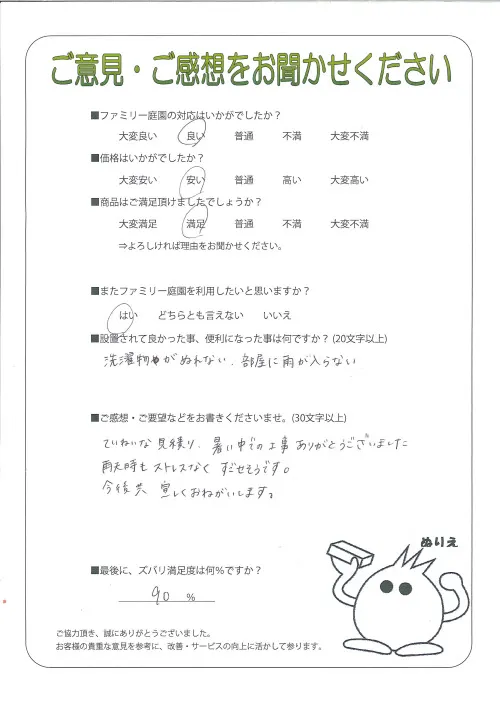 ご意見・ご感想をお聞かせください
■ファミリー庭園の対応はいかがでしたか？
大変良い 良い 普通 不満 大変不満
■価格はいかがでしたか？
大変安い 安い 普通 高い 大変高い
■商品はご満足頂けましたでしょうか？
大変満足 満足 普通 不満 大変不満
⇒よろしければ理由をお聞かせください。
■またファミリー庭園を利用したいと思いますか？
はい どちらとも言えない いいえ
■設置されて良かった事、便利になった事は何ですか？(20文字以上)
洗濯物がぬれない、部屋に雨が入らない
■ご感想・ご要望などをお書きくださいませ。(30文字以上)
ていねいな見積り、暑い中での工事ありがとうございました
雨天時もストレスなくすごせそうです。
今後共宜しくおねがいします。
ぬりえ
■最後に、ズバリ満足度は何％ですか？
90 ％
ご協力頂き、誠にありがとうございました。
お客様の貴重な意見を参考に、改善・サービスの向上に活かして参ります。